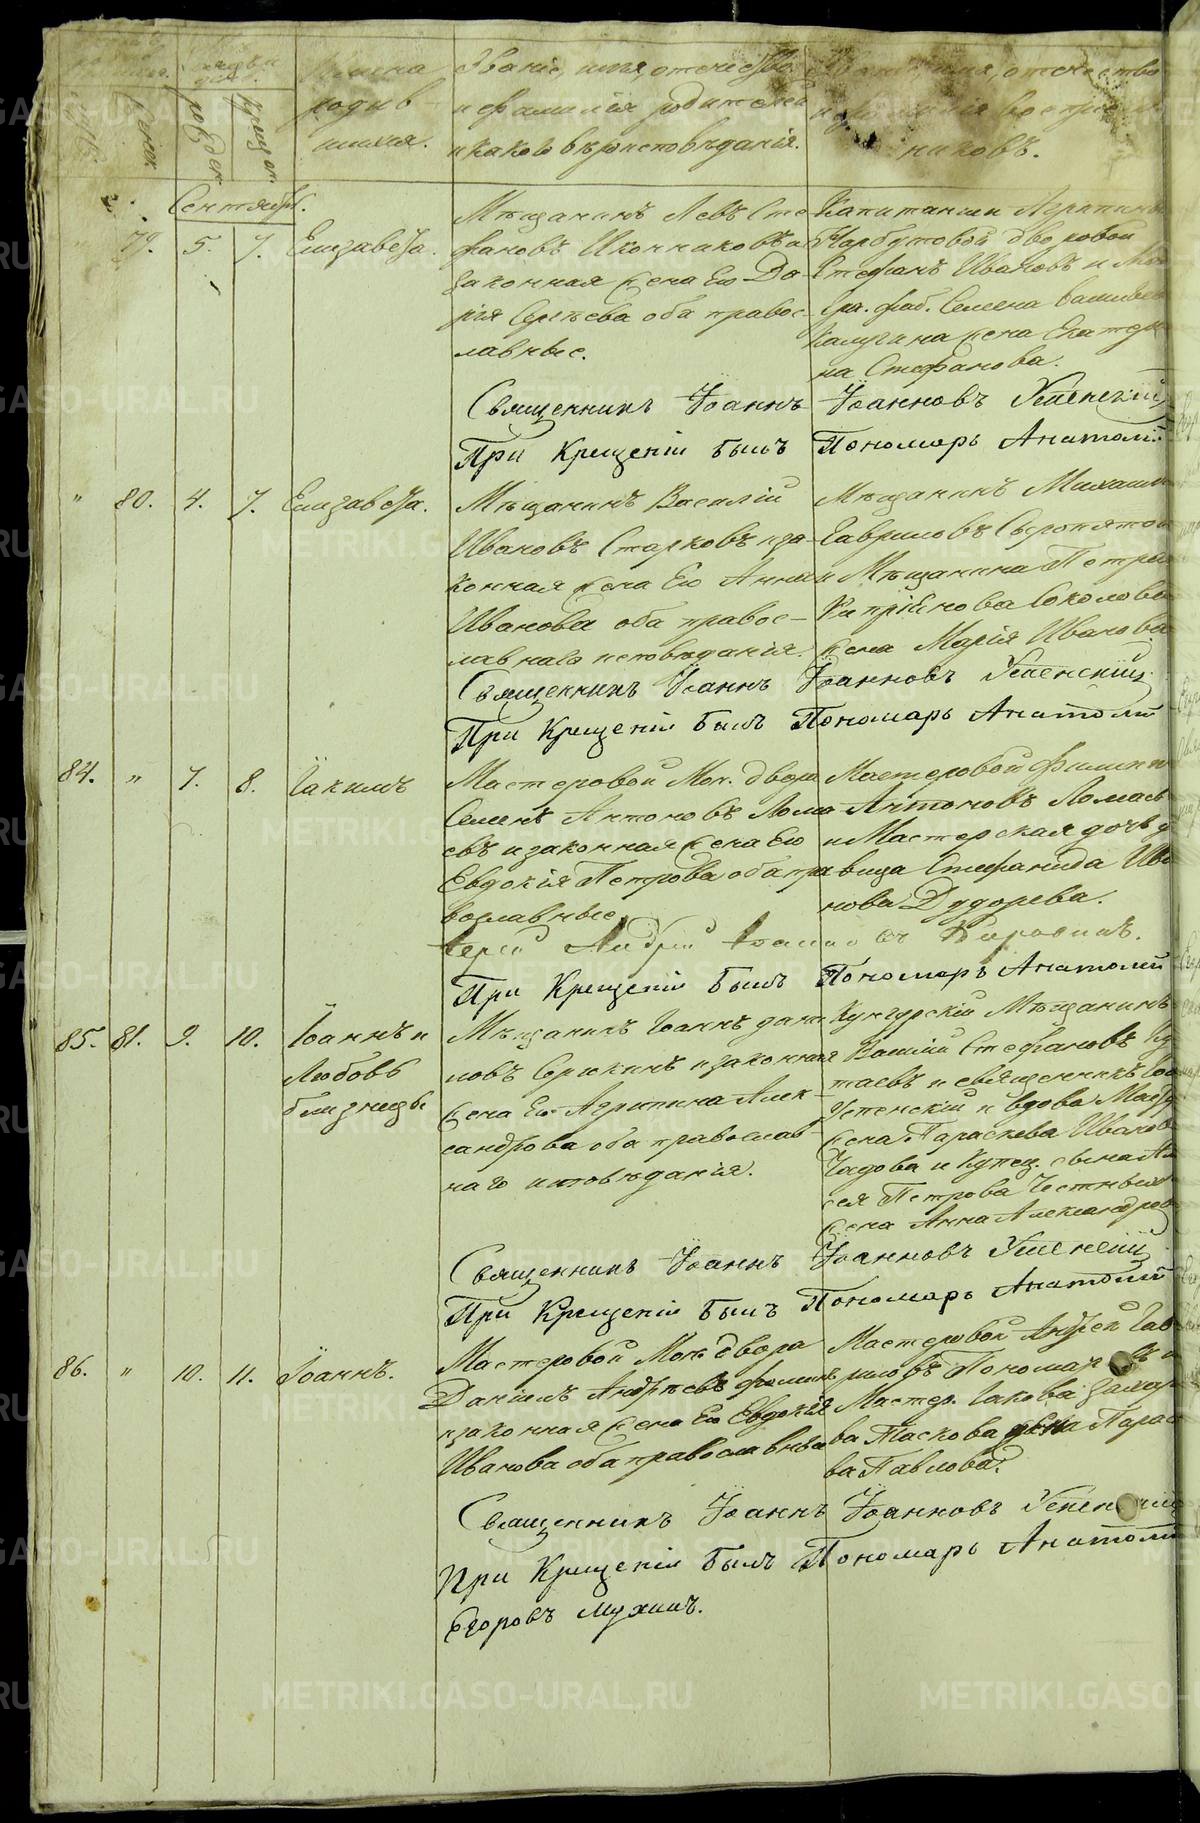 Имена
родив-
шихся.
Званіе, имя, отечество
и фамилія родителей
и какого вѣроисповѣданія.
имя, отечество
и фамилія воспріем
никовъ.
Женск.
рожден.
крещен.
Сентябрь.
79. 5. 7. Елизавета.
Мѣщанинъ Левъ Сте
фановъ Иконниковъ и
законная жена его Да
рія Сергѣева оба правос-
лавные.
Капитанши Агрипины
Нарбутовой дворовой
Стефанъ Ивановъ и Ма
гр. фаб. Семена Василье
Калугина жена Екатери
на Стефанова.
Священникъ Іоаннъ Іоанновъ Успенскій
При Крещеніи былъ Пономарь Анатолій
" 80. 4. 7. Елизавета.
Мѣщанинъ Василій
Ивановъ Старковъ и за-
конная жена его Анна
Иванова оба правос-
лавнаго исповѣданія.
Мѣщанинъ Михаилъ
Гавриловъ Сыропятов
и Мѣщанина Петра
Кипріянова Соколова
жена Марія Иванова
Священникъ Іоаннъ Іоанновъ Успенскій
При Крещеніи былъ Пономарь Анатолій
84. " 7. 8. Іакимъ
Мастеровой Мон. двора
Семенъ Антоновъ Лома
евъ и законная жена его
Евдокія Петрова оба пра
вославные
Мастеровой Филиппъ
Антоновъ Ломаевъ
и Мастерская дочь д
вица Стефанида Ива
нова Дудорева.
Іерей Андрей Іоанновъ
При Крещеніи былъ Пономарь Анатолій
85. 81. 9. 10. Іоаннъ и
Любовь
близнецы
Мѣщанинъ Іоаннъ Дани
ловъ Серюкинъ и законная
жена его Агрипина Алек-
сандрова оба православ-
наго исповѣданія.
Кунгурскій Мѣщанинъ
Василій Стефановъ Ку
таевъ и священникъ Іоа
Успенскій и вдова Мастер
жена Параскева Иванов
Чадова и Купец. сына Ал
сея Петрова Честныхъ
жена Анна Александров
Священникъ Іоаннъ Іоанновъ Успенскій
При Крещеніи былъ Пономарь Анатолій
86. " 10. 11. Іоаннъ.
Мастеровой Мон. двора
Даніилъ Андреевъ Фомин
и законная жена его Евдокія
Иванова оба православные
Мастеровой Андрей Гав
риловъ Пономаревъ и
Мастер. Іакова Захар
ва Паскова жена Парас
ва Павлова.
Священникъ Іоаннъ Іоанновъ Успенскій
При Крещеніи былъ Пономарь Анатолій
Егоровъ Мухинъ.
METRIKI.GASO-URAL.RU